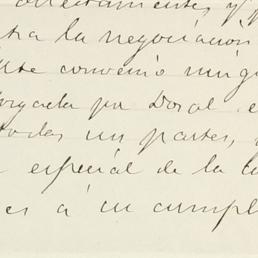 directamente, y p
tra la negociacion
este convenio ning
orgada por Doral e
todas sus partes,
especial de la Co
es á su cumpl